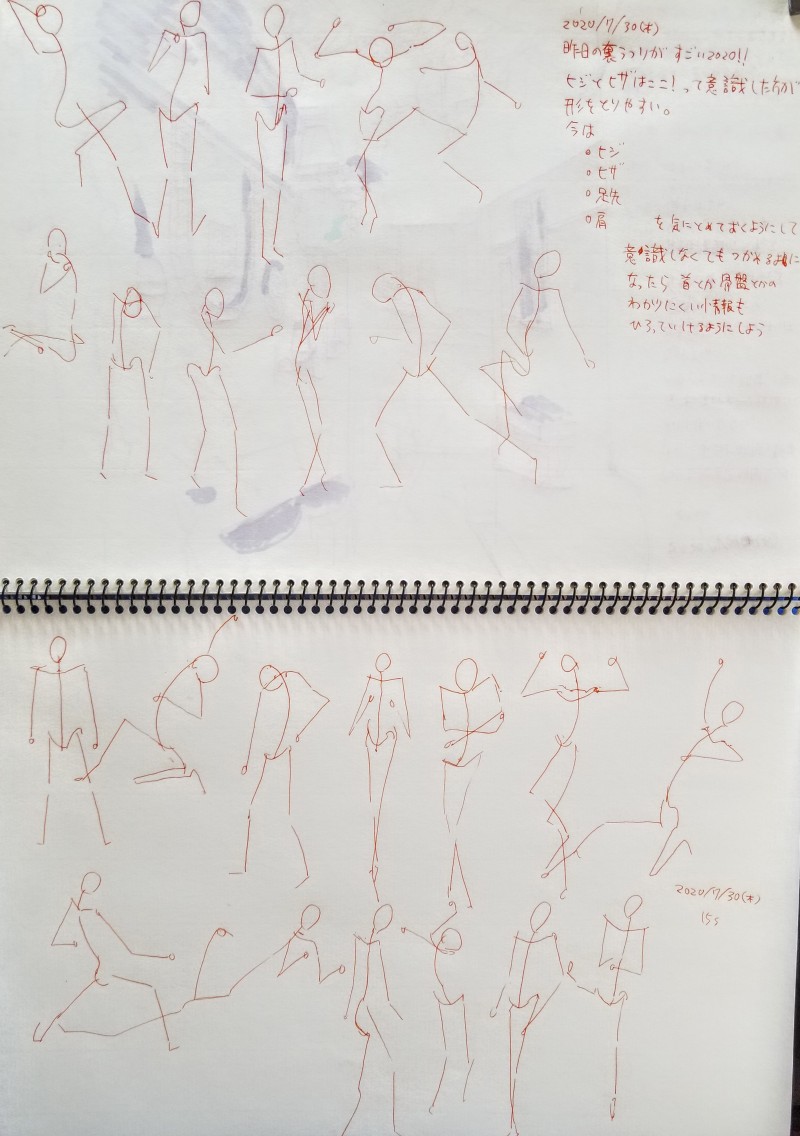 2020/7/30(木)
昨日の裏うつりが すごい2020!!
ヒジとヒザはここ!って意識した方が
形をとりやすい。
今は
・ヒジ
・ヒザ
・足先
・肩 を気にとめておくようにして
意識しなくてもつかめるように
なったら 首とか骨盤とかの
わかりにくい情報も
ひろっていけるようにしよう
2020/7/30(木)
15s